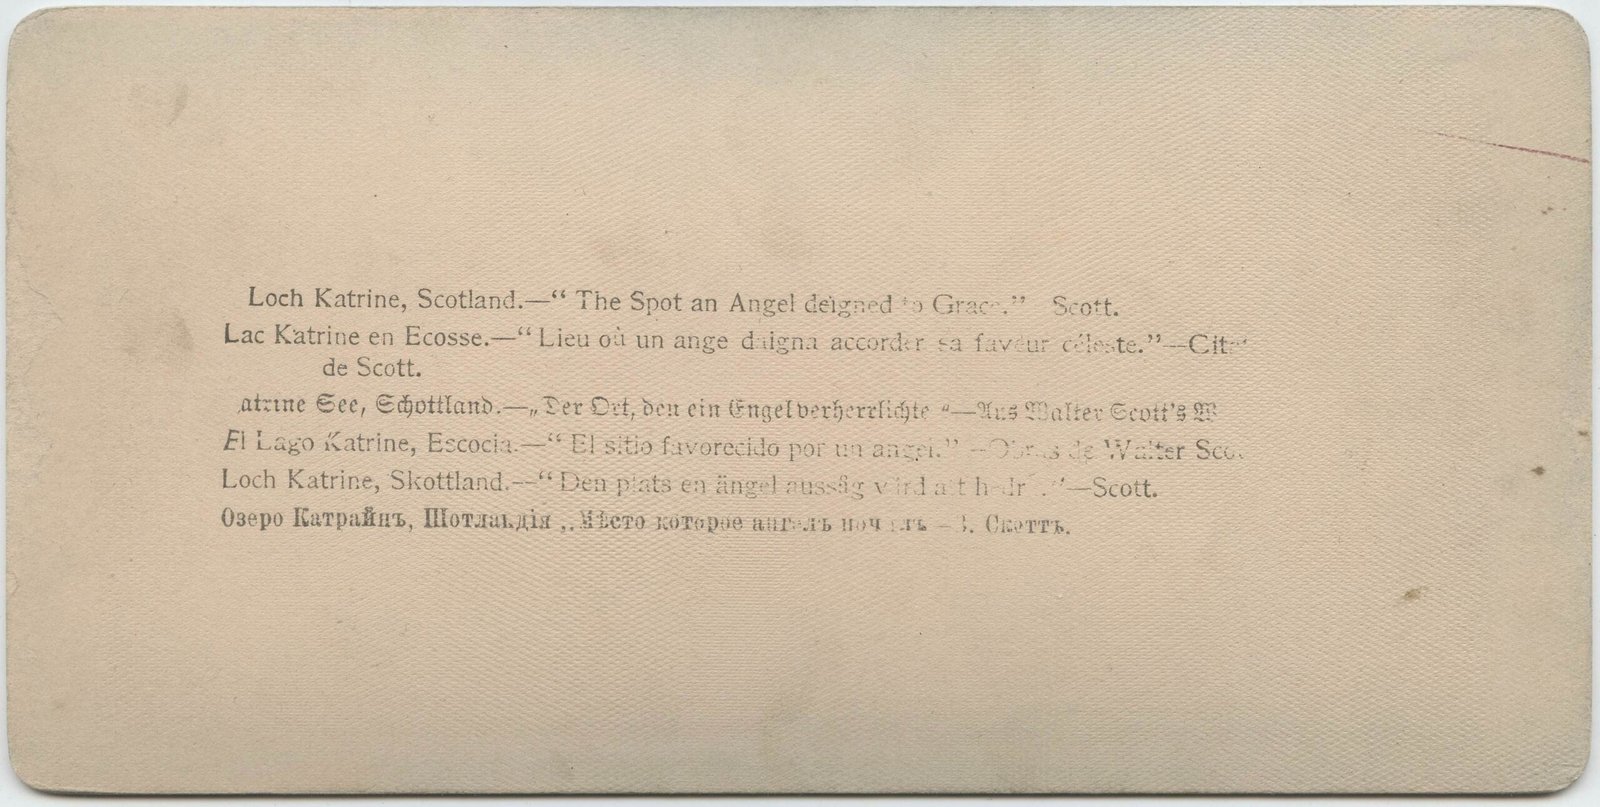 Loch Katrine, Scotland.—“ The Spot an Angel deigned to Grace.” Scott.
Lac Katrine en Ecosse.—“ Lieu où un ange daigna accorder sa faveur céleste.”—
de Scott.
atrine See, Schottland.—„Der Ort, den ein Engel verherrlichte “—Aus Walter Scott's
El Lago Katrine, Escocia.—“ El sitio favorecido por un angel.” —Obras de Walter
Loch Katrine, Skottland.—“ Den plats en ängel aussåg värd att —Scott.
Озеро Катрайнъ, Шотландія „Мѣсто которое ангелъ — Скоттъ.